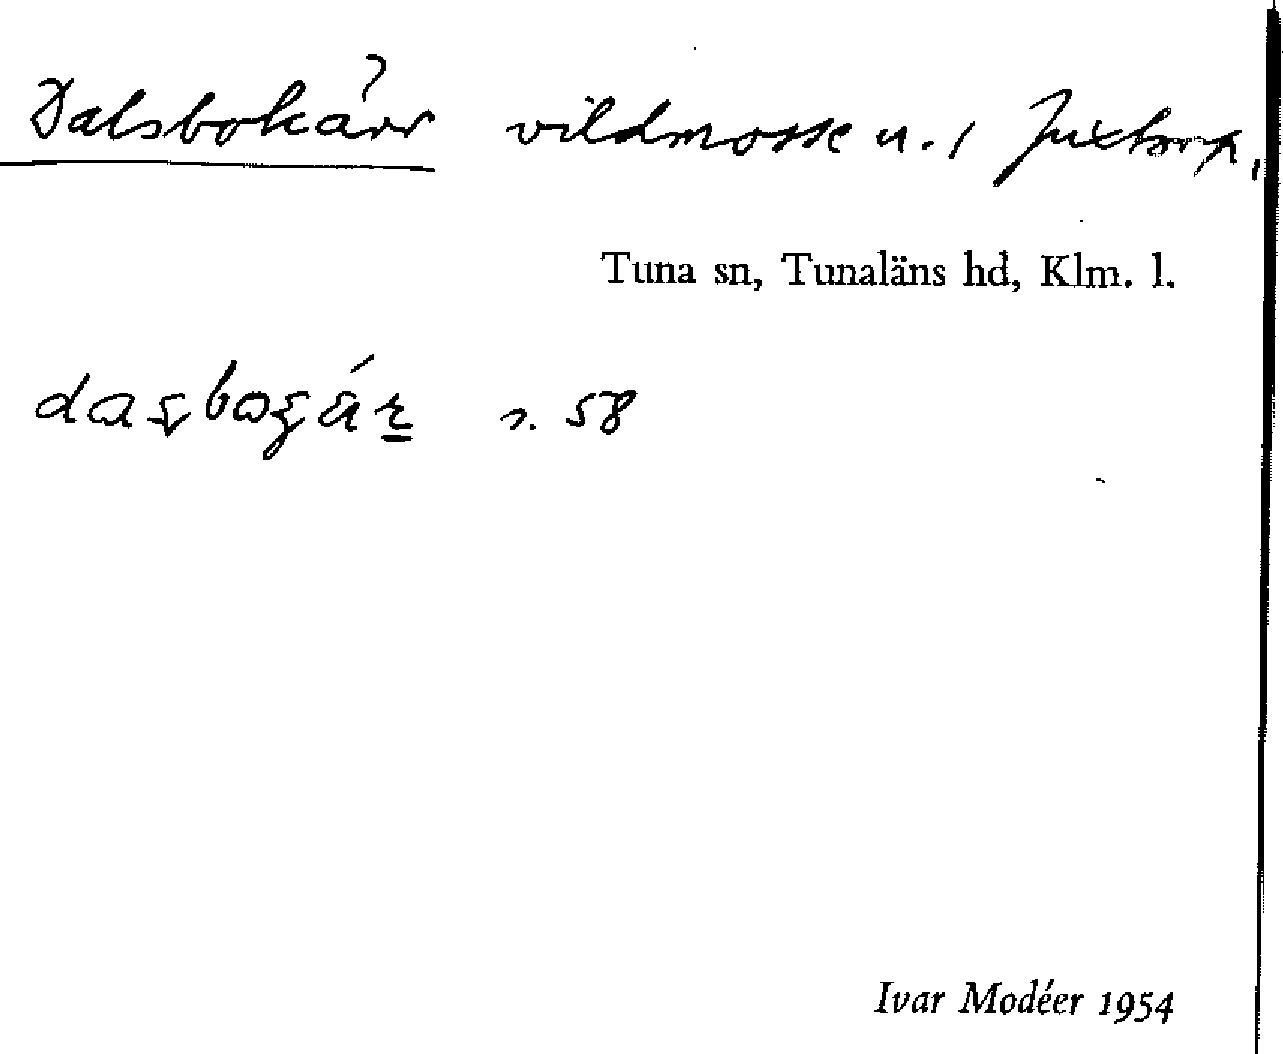 Dalsbokärr vildmosse u. / Juxtorp,
Tuna sn, Tunaläns hd, Klm. l.
s. 58
Ivar Modéer 1954